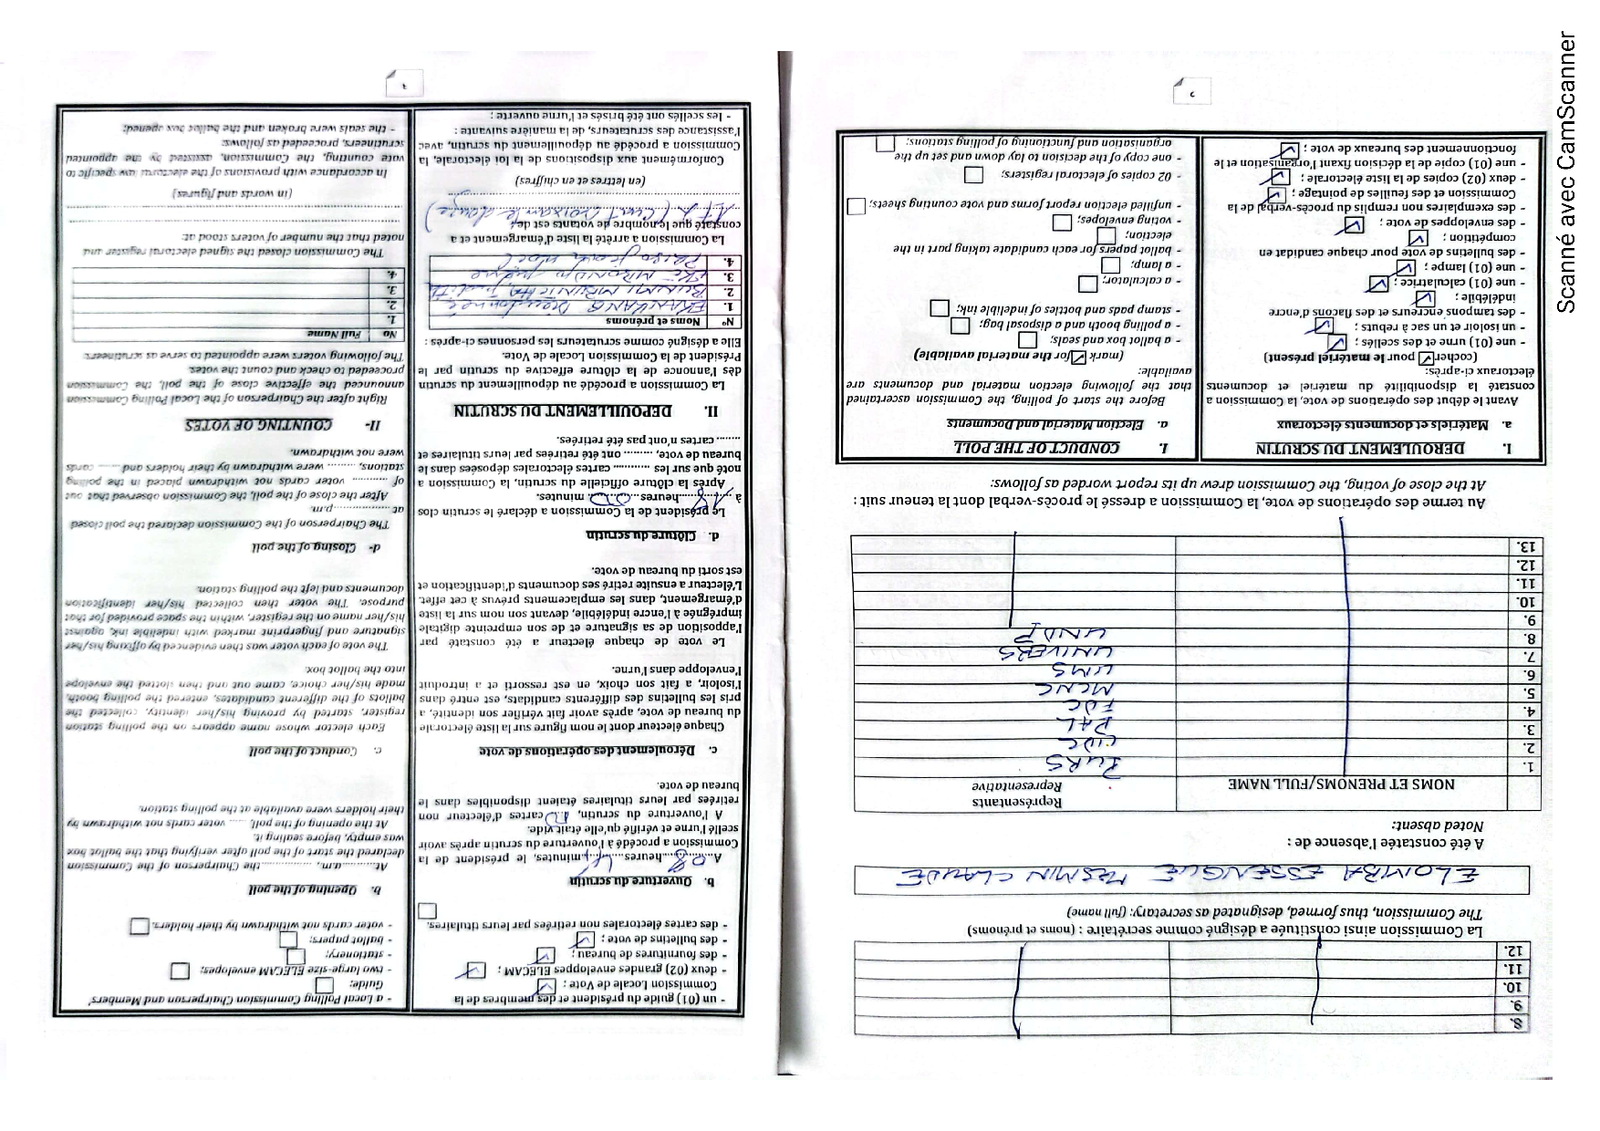 8.
9.
10.
11.
12.
La Commission ainsi constituée a désigné comme secrétaire : (noms et prénoms)
The Commission, thus formed, designated as secretary: (full name)
ELOMBA ESSENGUE MESMIN CLAUDE
A été constatée l'absence de :
Noted absent:
NOMS ET PRENOMS/FULL NAME
Représentants
Representative
1. PURS
2. UDC
3. PAL
4. FDC
5. MCNC
6. UMS
7. UNIVERS
8. UNDP
9.
10.
11.
12.
13.
Au terme des opérations de vote, la Commission a dressé le procès-verbal dont la teneur suit :
At the close of voting, the Commission drew up its report worded as follows:
I. DEROULEMENT DU SCRUTIN
a. Matériels et documents électoraux
Avant le début des opérations de vote, la Commission a
constaté la disponibilité du matériel et documents
électoraux ci-après:
(cocher pour le matériel présent)
- une (01) urne et des scellés ;
- un isoloir et un sac à rebuts ;
- des tampons encreurs et des flacons d'encre
indélébile ;
- une (01) calculatrice ;
- une (01) lampe ;
- des bulletins de vote pour chaque candidat en
compétition ;
- des enveloppes de vote ;
- des exemplaires non remplis du procès-verbal de la
Commission et des feuilles de pointage ;
- deux (02) copies de la liste électorale ;
- une (01) copie de la décision fixant l'organisation et le
fonctionnement des bureaux de vote ;
I. CONDUCT OF THE POLL
a. Election Material and Documents
Before the start of polling, the Commission ascertained
that the following election material and documents are
available:
(mark for the material available)
- a ballot box and seals;
- a polling booth and a disposal bag;
- stamp pads and bottles of indelible ink;
- a calculator;
- a lamp;
- ballot papers for each candidate taking part in the
election;
- voting envelopes;
- unfilled election report forms and vote counting sheets;
- 02 copies of electoral registers;
- one copy of the decision to lay down and set up the
organisation and functioning of polling stations;
3
- un (01) guide du président et des membres de la
Commission Locale de Vote ;
- deux (02) grandes enveloppes ELECAM ;
- des fournitures de bureau ;
- des bulletins de vote ;
- des cartes électorales non retirées par leurs titulaires.
b. Ouverture du scrutin
A 08 heures 4 minutes, le président de la
Commission a procédé à l'ouverture du scrutin après avoir
scellé l'urne et vérifié qu'elle était vide.
A l'ouverture du scrutin, cartes d'électeur non
retirées par leurs titulaires étaient disponibles dans le
bureau de vote.
c. Déroulement des opérations de vote
Chaque électeur dont le nom figure sur la liste électorale
du bureau de vote, après avoir fait vérifier son identité, a
pris les bulletins des différents candidats, est entré dans
l'isoloir, a fait son choix, en est ressorti et a introduit
l'enveloppe dans l'urne.
Le vote de chaque électeur a été constaté par
l'apposition de sa signature et de son empreinte digitale
imprégnée à l'encre indélébile, devant son nom sur la liste
d'émargement, dans les emplacements prévus à cet effet.
L'électeur a ensuite retiré ses documents d'identification et
est sorti du bureau de vote.
d. Clôture du scrutin
Le président de la Commission a déclaré le scrutin clos
à 18 heures 00 minutes.
Après la clôture officielle du scrutin, la Commission a
noté que sur les ......... cartes électorales déposées dans le
bureau de vote, ......... ont été retirées par leurs titulaires et
...... cartes n'ont pas été retirées.
II. DEPOUILLEMENT DU SCRUTIN
La Commission a procédé au dépouillement du scrutin
dès l'annonce de la clôture effective du scrutin par le
Président de la Commission Locale de Vote.
Elle a désigné comme scrutateurs les personnes ci-après :
N° Noms et prénoms
1. Dieudonné
2.
3.
4.
La Commission a arrêté la liste d'émargement et a
constaté que le nombre de votants est de :
172 (cent soixante douze)
(en lettres et en chiffres)
Conformément aux dispositions de la loi électorale, la
Commission a procédé au dépouillement du scrutin, avec
l'assistance des scrutateurs, de la manière suivante :
- les scellés ont été brisés et l'urne ouverte ;
- a Local Polling Commission Chairperson and Members'
Guide;
- two large-size ELECAM envelopes;
- stationery;
- ballot papers;
- voter cards not withdrawn by their holders.
b. Opening of the poll
At............am, ............ the Chairperson of the Commission
declared the start of the poll after verifying that the ballot box
was empty, before sealing it.
At the opening of the poll, ..... voter cards not withdrawn by
their holders were available at the polling station.
c. Conduct of the poll
Each elector whose name appears on the polling station
register, started by proving his/her identity, collected the
ballots of the different candidates, entered the polling booth,
made his/her choice, came out and then slotted the envelope
into the ballot box.
The vote of each voter was then evidenced by affixing his/her
signature and fingerprint marked with indelible ink, against
his/her name on the register, within the space provided for that
purpose. The voter then collected his/her identification
documents and left the polling station.
d- Closing of the poll
The Chairperson of the Commission declared the poll closed
at ..................p.m.
After the close of the poll, the Commission observed that out
of ......... voter cards not withdrawn placed in the polling
stations, ........ were withdrawn by their holders and ...... cards
were not withdrawn.
II- COUNTING OF VOTES
Right after the Chairperson of the Local Polling Commission
announced the effective close of the poll, the Commission
proceeded to check and count the votes.
The following voters were appointed to serve as scrutineers:
No Full Name
1.
2.
3.
4.
The Commission closed the signed electoral register and
noted that the number of voters stood at:
(in words and figures)
In accordance with provisions of the electoral law specific to
vote counting, the Commission, assisted by the appointed
scrutineers, proceeded as follows:
- the seals were broken and the ballot box opened;
4
Scanné avec CamScanner